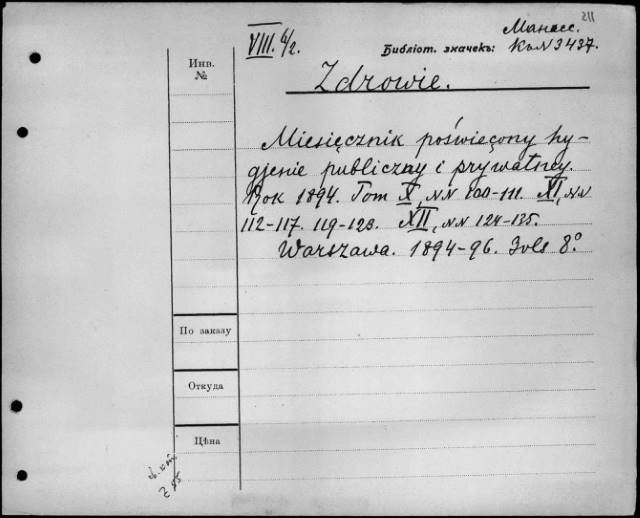 211
VIII. 6/2.
Манасс.
Библіот. значекъ: КъN 3437.
Инв.
№
Zdrowie.
Miesięcznik poświęcony hy-
gjenie publiczny i prywatney.
Rok 1894. Tom X, NN 100-111. XI, NN
112-117. 119-123. XII, NN 124-135.
Warszawa. 1894-96. 3 vls 8°
По заказу
Откуда
Цѣна